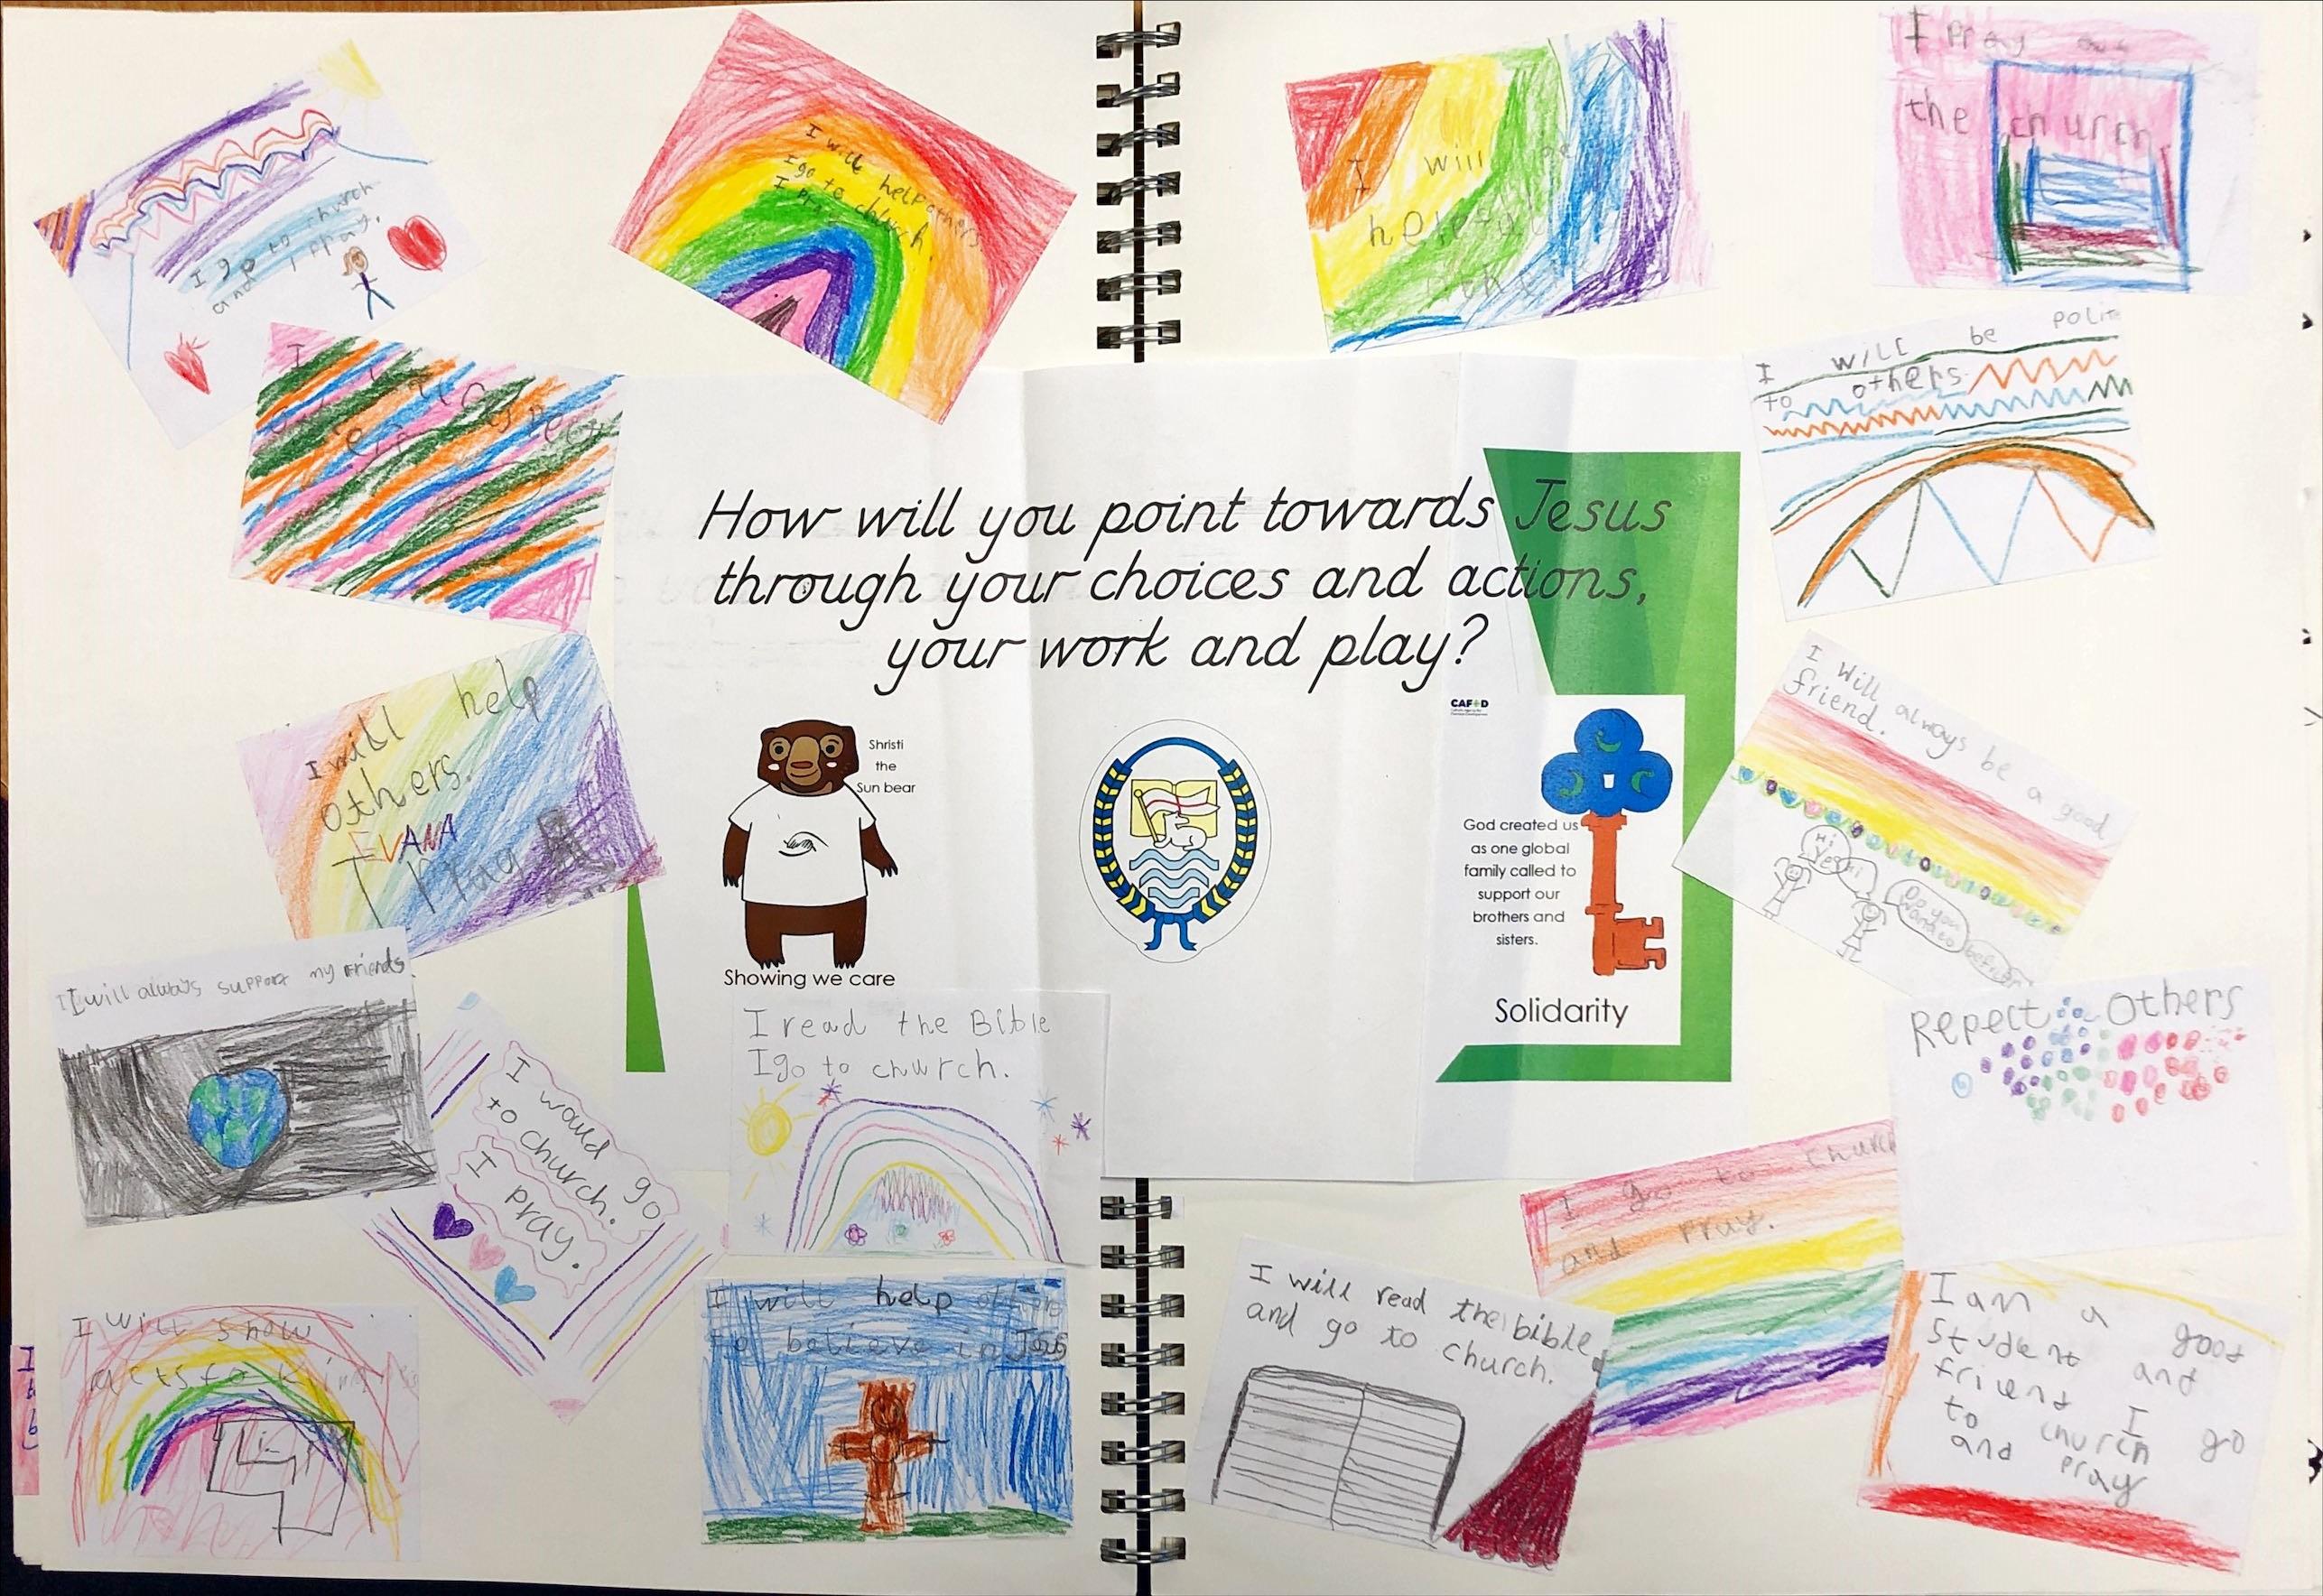 I go to church
and I pray.
I will help others
I go to church.
I pray
I will be
helpful
I pray
the church.
I will be polite
to others.
I
respect
How will you point towards Jesus
through your choices and actions,
your work and play?
I will help
others.
EVANA
I Pray
Shristi
the
Sun bear
Showing we care
CAFOD
God created us
as one global
family called to
support our
brothers and
sisters.
Solidarity
I will always be a good
friend.
Hi
Yes
Hi
Do you
want to
I will always support my friends.
I would go
to church.
I pray.
I read the Bible
I go to church.
Repect others
I go to church
and pray.
I will show
acts to
I will help others
to believe in Jesus
I will read the bible
and go to church.
I am a good
student and
friend I go
to church
and pray